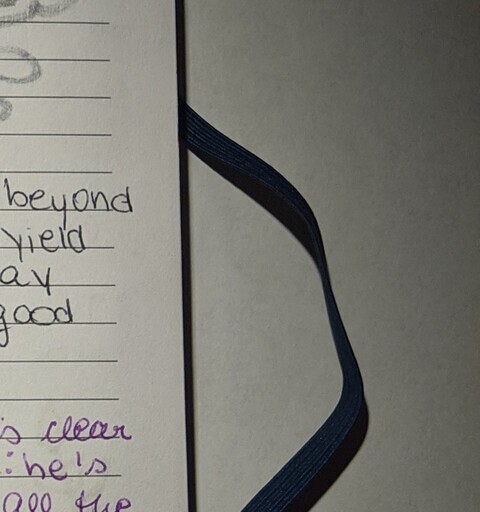 beyond
yield
ay
good
s clear
: he's
all the